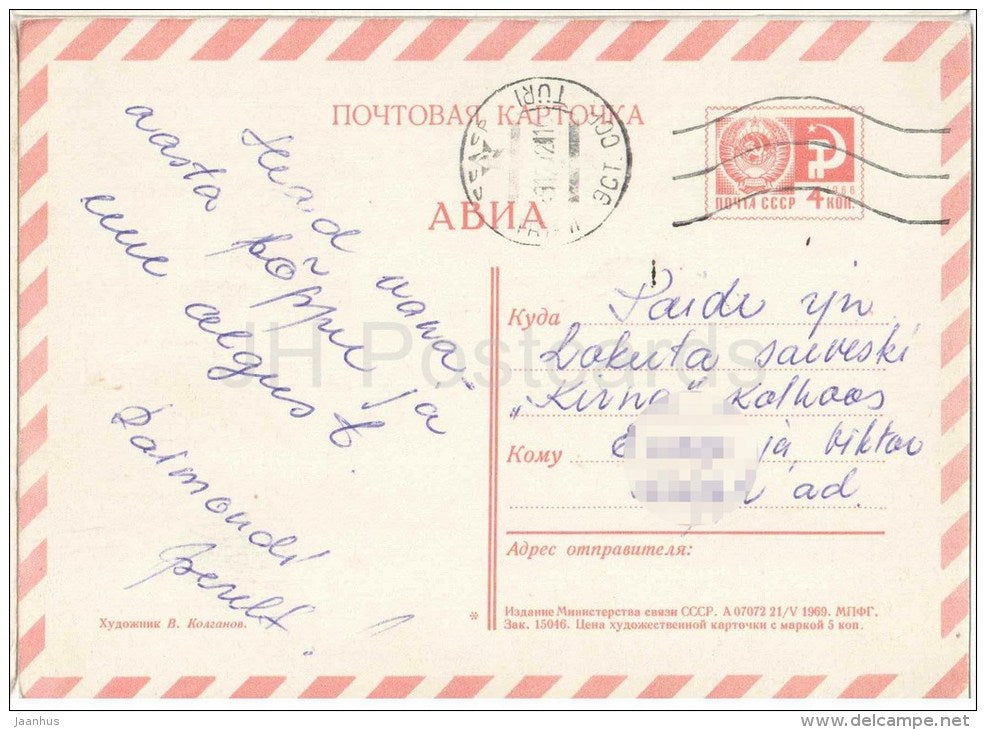 ПОЧТОВАЯ КАРТОЧКА
АВИА
ПОЧТА СССР 4 КОП.
1966
TÜRI
Head vana-
aasta lõppu ja
uue algust.
Raimondi
perelt!
Куда Paide rjn
Lokuta saeveski
„Kirna" kolhoos
Кому ja Viktor
ad
Адрес отправителя:
Художник В. Колганов.
* Издание Министерства связи СССР. А 07072 21/V 1969. МПФГ.
Зак. 15046. Цена художественной карточки с маркой 5 коп.
JH Postcards
jaanhus
delcampe.net